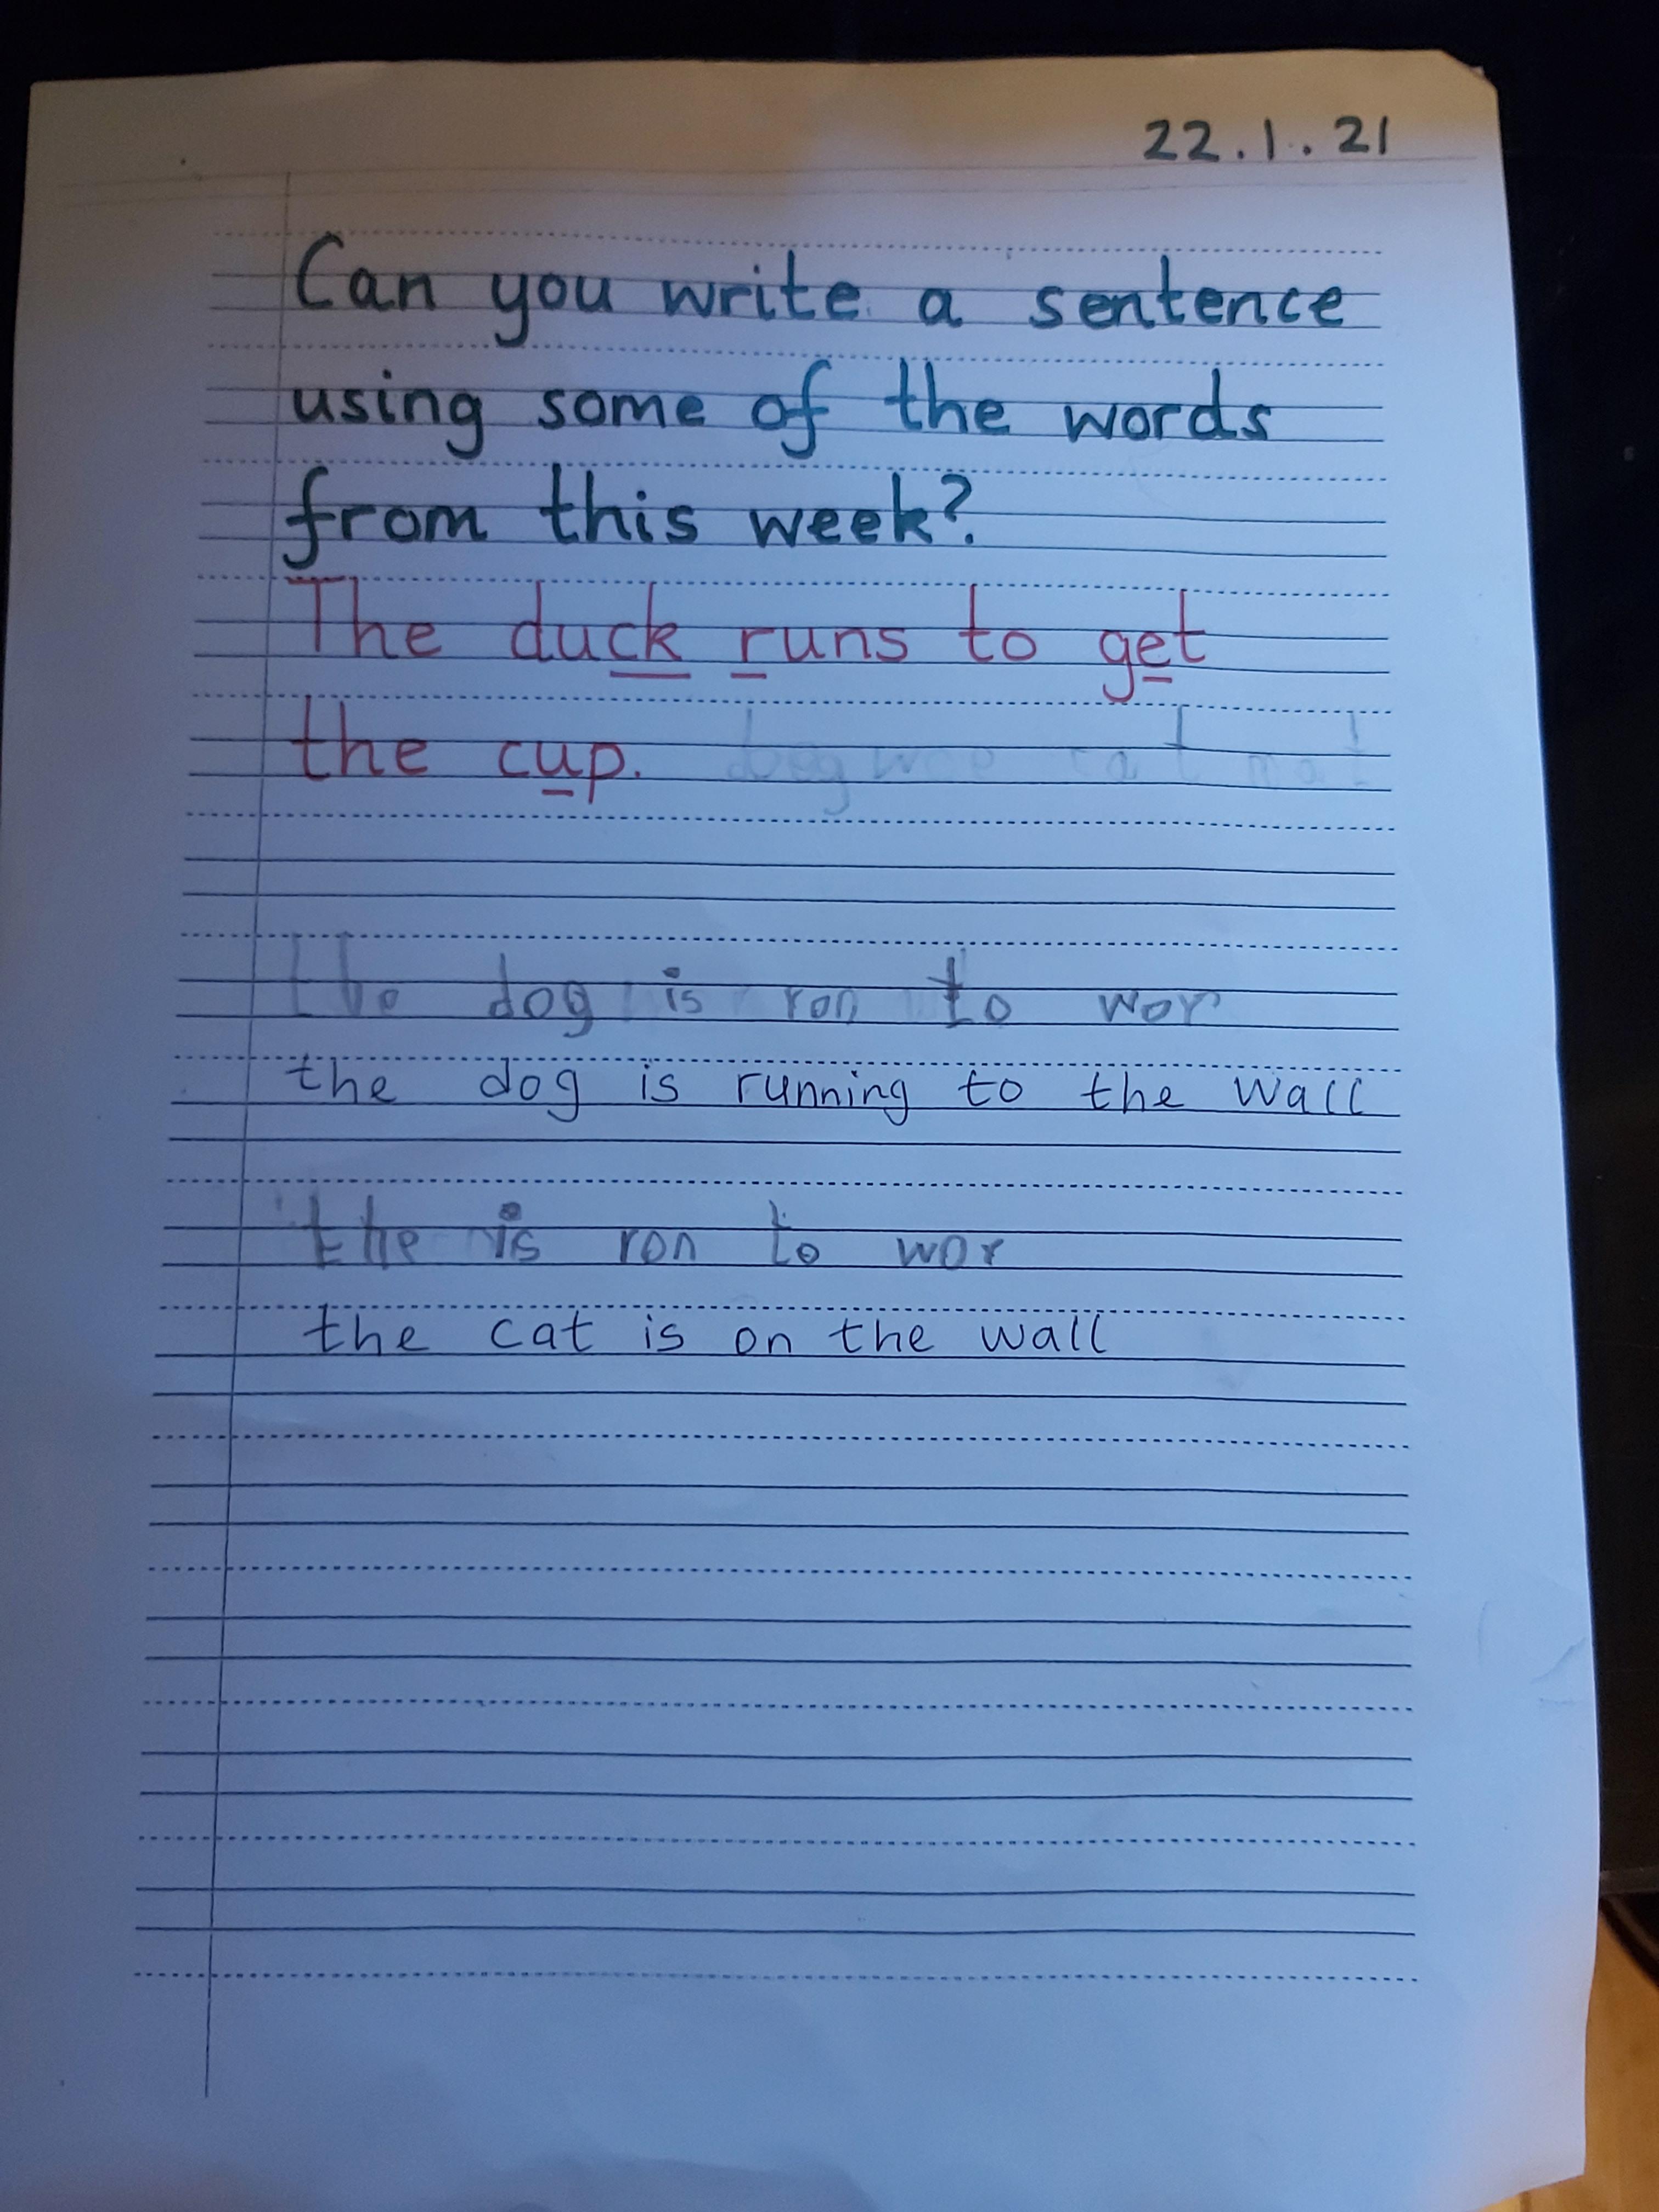 22.1.21
Can you write a sentence
using some of the words
from this week?
The duck runs to get
the cup.
the dog is ron to wor
the dog is running to the wall
the is ron to wor
the cat is on the wall